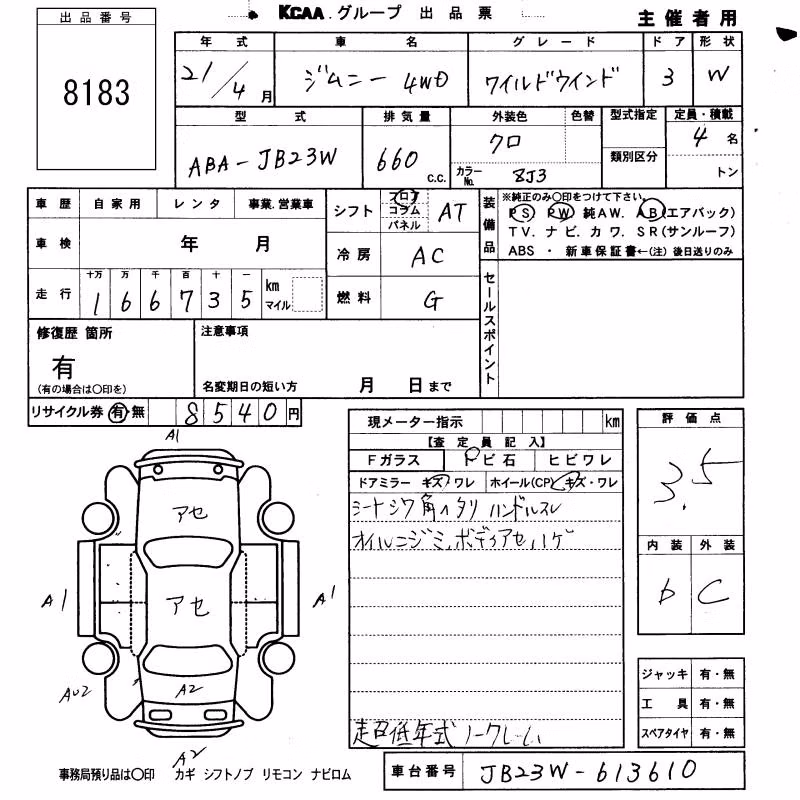 KCAA.グループ 出品票
主催者用
出品番号
8183
年式 車名 グレード ドア 形状
21/4月 ジムニー 4WD ワイルドウインド 3 W
型式 排気量 外装色 色替 型式指定 定員・積載
ABA-JB23W 660 c.c. クロ 4名
類別区分
カラーNo. 8J3 トン
車歴 自家用 レンタ 事業.営業車
シフト フロア コラム パネル AT
装備品
※純正のみ○印をつけて下さい。
PS PW 純AW. AB(エアバック)
TV. ナビ. カワ. SR(サンルーフ)
ABS ・ 新車保証書←(注)後日送りのみ
車検 年 月
冷房 AC
走行 十万 万 千 百 十 一
1 6 6 7 3 5 km マイル
燃料 G
セールスポイント
修復歴 箇所
有
(有の場合は○印を)
注意事項
名変期日の短い方 月 日まで
リサイクル券 有 無 8540円
現メーター指示 km
【査定員記入】
Fガラス トビ石 ヒビワレ
ドアミラー キズ ワレ ホイール(CP) キズ・ワレ
シートシワ角イタリ ハンドルスレ
オイルニジミ.ボディアセ,ハゲ
超低年式 ノークレーム
評価点
3.5
内装 外装
b C
A1
アセ
A1 アセ A1
AU2
A2
A2
ジャッキ 有・無
工具 有・無
スペアタイヤ 有・無
事務局預り品は○印 カギ シフトノブ リモコン ナビロム
車台番号 JB23W-613610